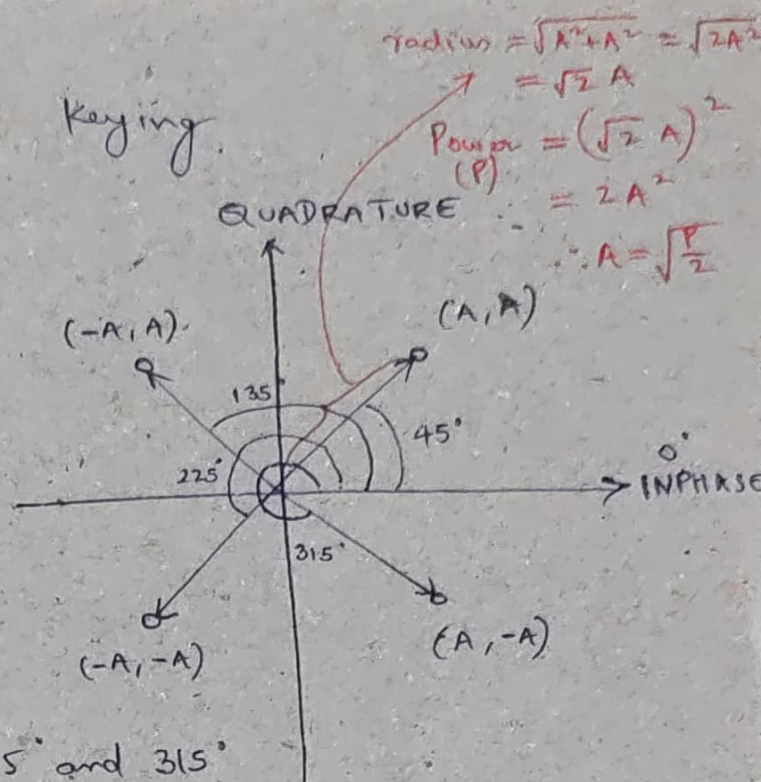 radius = √A²+A² = √2A²
= √2 A
Keying.
Power = (√2 A)²
(P)
= 2A²
∴ A = √P/2
QUADRATURE
(-A, A).
(A, A)
135°
45°
0°
225°
INPHASE
315°
(-A, -A)
(A, -A)
5° and 315°